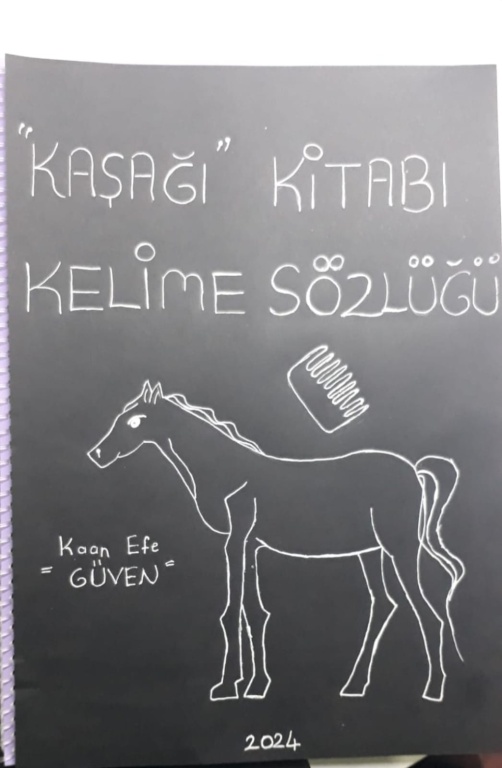 "KAŞAĞI" KİTABI
KELİME SÖZLÜĞÜ
Kaan Efe
= GÜVEN =
2024